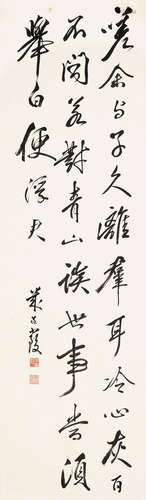 嗟余与子久離羣耳冷心灰百
不聞若對青山談世事當須
舉白便浮君